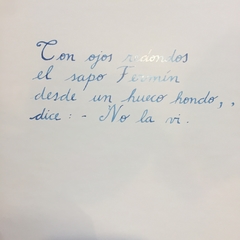 Con ojos redondos
el sapo Fermín
desde un hueco hondo,
dice: - No la vi.